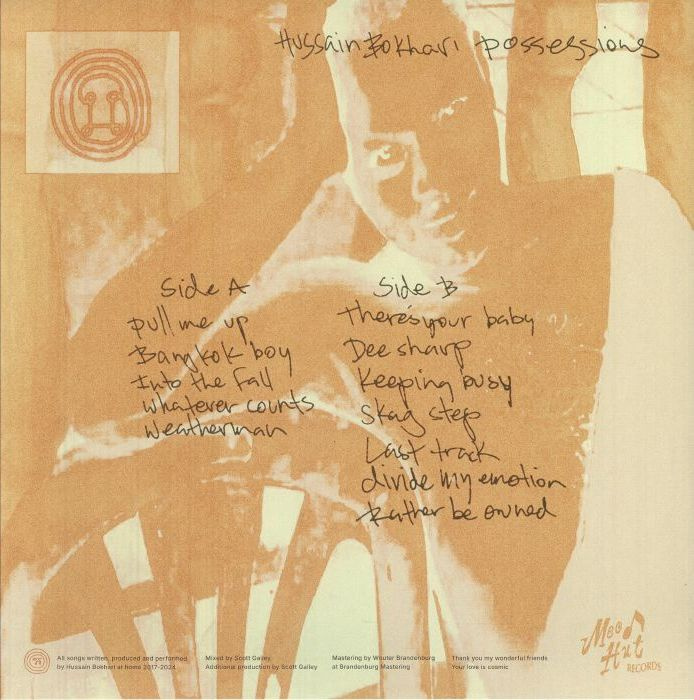 Hussain Bokhari possessions
Side A
pull me up
Bangkok boy
Into the Fall
whatever counts
Weatherman
Side B
there's your baby
Dee sharp
Keeping busy
Skag step
Last track
divide my emotion
Rather be owned
All songs written, produced and performed
by Hussain Bokhari at home 2017-2024
Mixed by Scott Gailey
Additional production by Scott Gailey
Mastering by Wouter Brandenburg
at Brandenburg Mastering
Thank you my wonderful friends
Your love is cosmic
Mood
Hut
RECORDS